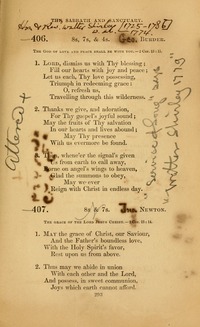 THE SABBATH AND SANCTUARY.
Hon & Rev. Walter Shirley (1725-1786)
a. d. 1774.
406. 8s, 7s, & 4s. Geo. BURDER.
THE GOD OF LOVE AND PEACE SHALL BE WITH YOU.—2 Cor.
1. LORD, dismiss us with Thy blessing;
Fill our hearts with joy and peace;
Let us each, Thy love possessing,
Triumph in redeeming grace:
O, refresh us,
Travelling through this wilderness.
2. Thanks we give, and adoration,
For Thy gospel's joyful sound;
May the fruits of Thy salvation
In our hearts and lives abound;
May Thy presence
With us evermore be found.
whene'er the signal's given
Us from earth to call away,
Borne on angel's wings to heaven,
Glad the summons to obey,
May we ever
Reign with Christ in endless day.
Altered &
"Service of Song" says
"Written Shirley 1773"
407. 8s & 7s. Jno. NEWTON.
THE GRACE OF THE LORD JESUS CHRIST.
1. MAY the grace of Christ, our Saviour,
And the Father's boundless love,
With the Holy Spirit's favor,
Rest upon us from above.
2. Thus may we abide in union
With each other and the Lord,
And possess, in sweet communion,
Joys which earth cannot afford.